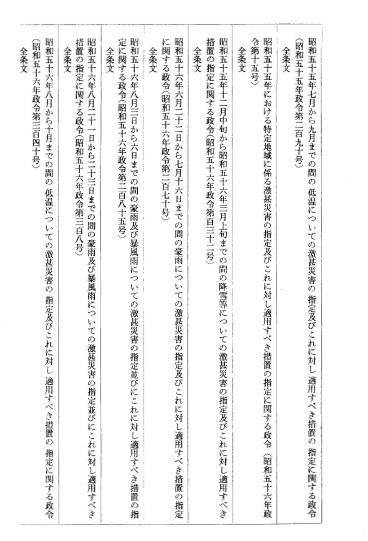 昭和五十五年七月から九月までの間の低温についての激甚災害の指定及びこれに対し適用すべき措置の指定に関する政令
（昭和五十五年政令第二百九十号）
全条文
昭和五十五年における特定地域に係る激甚災害の指定及びこれに対し適用すべき措置の指定に関する政令（昭和五十六年政
令第十五号）
全条文
昭和五十五年十二月中旬から昭和五十六年三月上旬までの間の降雪等についての激甚災害の指定及びこれに対し適用すべき
措置の指定に関する政令（昭和五十六年政令第百三十二号）
全条文
昭和五十六年六月二十二日から七月十六日までの間の豪雨についての激甚災害の指定及びこれに対し適用すべき措置の指定
に関する政令（昭和五十六年政令第二百七十号）
全条文
昭和五十六年八月三日から六日までの間の豪雨及び暴風雨についての激甚災害の指定並びにこれに対し適用すべき措置の指
定に関する政令（昭和五十六年政令第二百八十五号）
全条文
昭和五十六年八月二十一日から二十三日までの間の豪雨及び暴風雨についての激甚災害の指定並びにこれに対し適用すべき
措置の指定に関する政令（昭和五十六年政令第三百八号）
全条文
昭和五十六年八月から十月までの間の低温についての激甚災害の指定及びこれに対し適用すべき措置の指定に関する政令
（昭和五十六年政令第三百四十号）
全条文